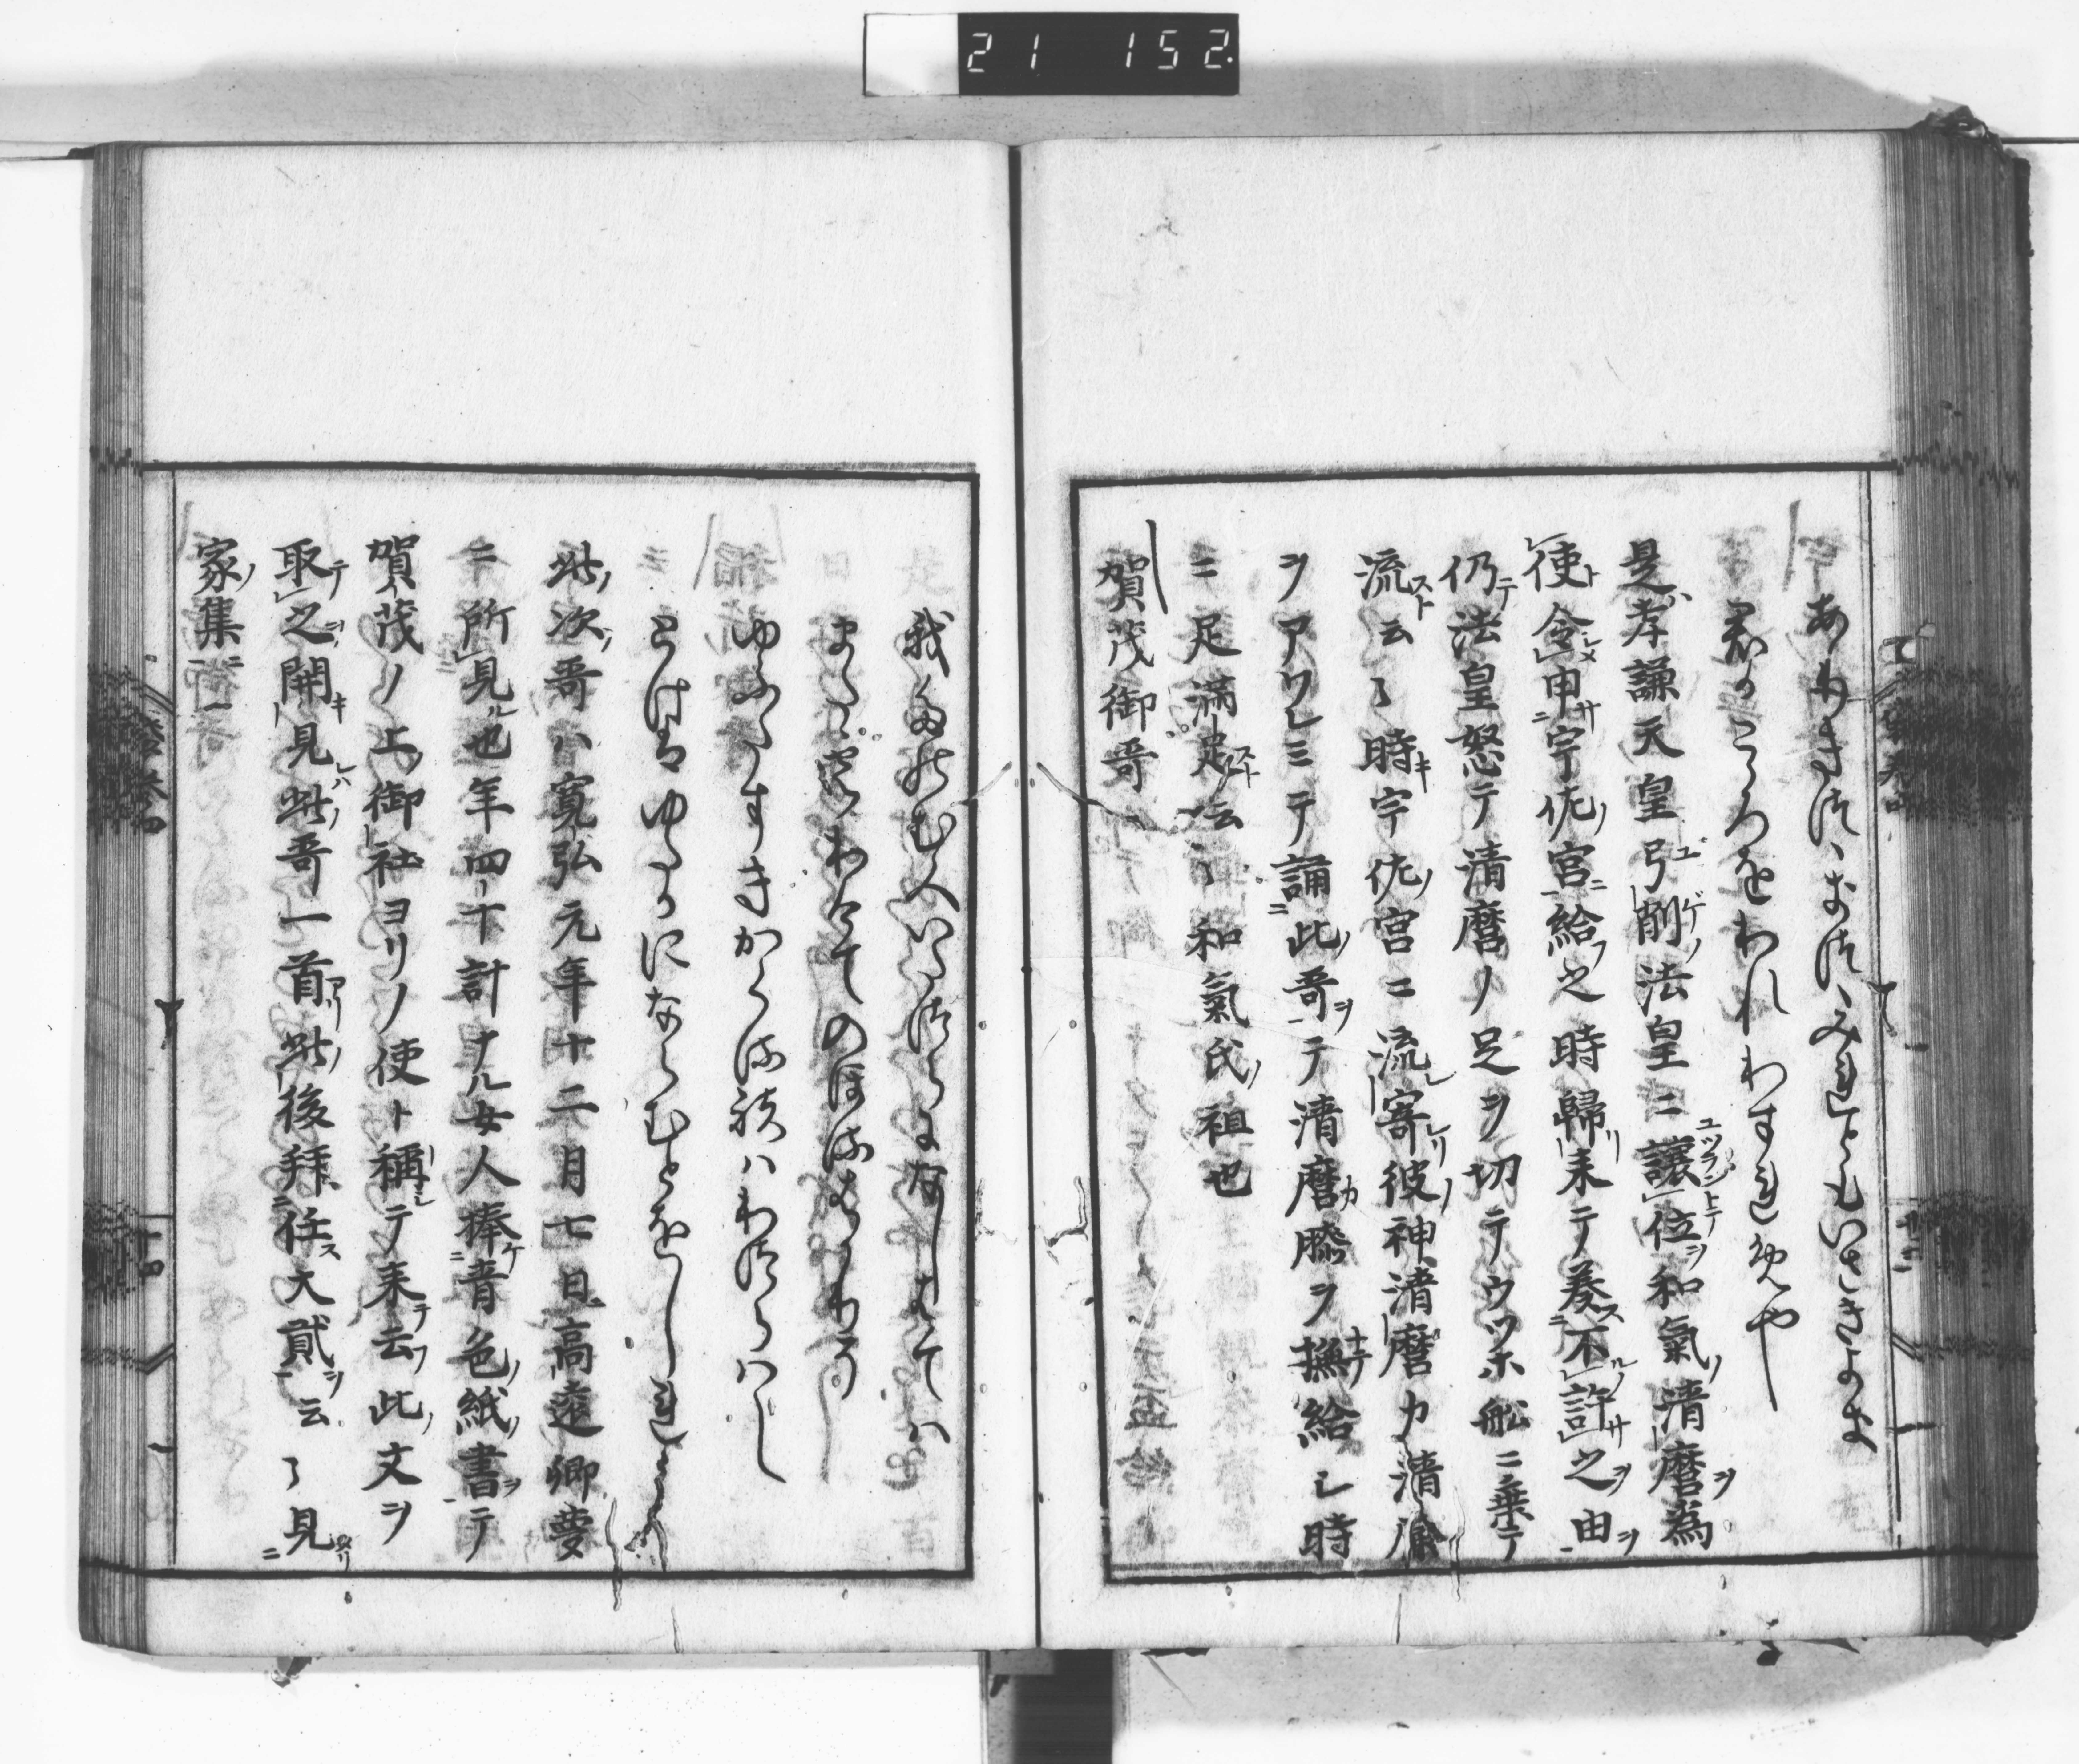 21 152.
ありきつゝきつゝみれともいさきよき
君かこゝろをわれわすれめや
是ハ孝謙天皇弓削ノ法皇ニ讓位ヲ和氣ノ清麿ヲ為
使ト令申宇佐ノ宮ニ給フ之時歸リ来テ奏ス不ル許サ之ヲ由ヲ
仍テ法皇怒テ清麿ノ足ヲ切テウツホ舩ニ乗テ
流スト云々時キ宇佐ノ宮ニ流レ寄レリ彼ノ神清麿カ清廉
ヲアワレミテ誦此ノ哥ヲテ清麿カ膝ヲ撫テ給シ時
ニ足滿足スト云々和氣氏ノ祖也
賀茂御哥
我たのむ人いたつらになしはては
また雲わけてのほるはかりそ
ゆふたすきかくる袂はわつらはし
とけはゆたかにならむとをしれ
此ノ次ノ哥ハ寛弘元年十二月七日高遠卿夢
ニ所見ル也年四十計ナル女人捧ケ青色ノ紙ノ書ヲテ
賀茂ノ上御社ヨリノ使ト稱シテ来テ云フ此ノ文ヲ
取テ之ヲ開キ見レハ此ノ哥一首アリ此ノ後拜任ス大貳ヲ云々見タリ
家ノ集ニ